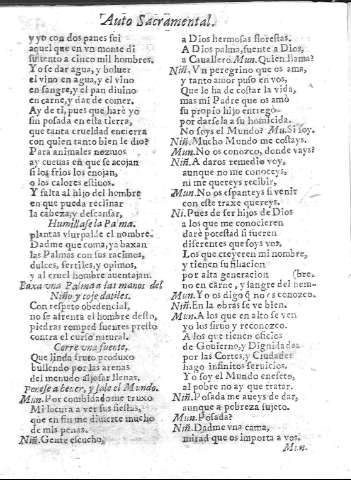 Auto Sacramental.
y yo con dos panes fui
aquel que en vn monte di
sustento a cinco mil hombres.
Yo se dar agua, y boluer
el vino en agua, y el vino
en sangre, y el pan diuino
en carne, y dar de comer.
Ay de ti, pues que harè yo
sin posada en esta tierra,
que tanta crueldad encierra
con quien tanto bien le dio?
Para animales ay nueuas
ay cueuas en que se acojan
si los frios los enojan,
o los calores estiuos.
Y falta al hijo del hombre
en que pueda reclinar
la cabeza, y descansar,
Humillase la Palma.
plantas viurpalde el nombre.
Dadme que coma, ya baxan
las Palmas con sus racimos,
dulces, fertiles, y opimos,
y al cruel hombre auentajan.
Baxa vna Palma a las manos del
Niño y coje datiles.
Con respeto obedencial,
no se afrenta el hombre desto,
piedras romped fuentes presto
contra el curso natural.
Corre vna fuente,
Que linda fruto produxo
bullendo por las arenas
del menudo aljofar llenas,
Ponese a beuer, y sale el Mundo.
Mun. Por combidadome truxo
Mi locura a ver sus fiestas,
que en fin me diuierte mucho
de mis penas.
Niñ. Gente escucho,
a Dios hermosas florestas.
A Dios palma, fuente a Dios,
a Cauallero. Mun. Quien llama?
Niñ. Vn peregrino que os ama,
y tanto amor puso en vos,
Que le ha de costar la vida,
mas mi Padre que os amò
su propio hijo entregò
por darsela a su homicida.
No soys el Mundo? Mu. Si soy.
Niñ. Mucho Mundo me costays.
Mun. No os conozco, donde vays?
Niñ. A daros remedio voy,
aunque no me conoceys,
ni me quereys recibir,
Mun. No os espanteys si venir
con este traxe quereys.
Ni. Pues de ser hijos de Dios
a los que me conocieren
darè potestad si fueren
diferentes que soys vos,
Los que creyeren mi nombre,
y tienen su filiacion
por alta generacion (bre.
no en carne, y sangre del nem-
Mun. Y o os digo q̃ no os conozco.
Niñ. En la obras se ve bien.
Mun. A los que en alto se ven
yo los siruo y reconozco.
A los que tienen oficios
de Gouierno, y Dignidades
por las Cortes, y Ciudades
hago infinitos seruicios.
Yo soy el Mundo en efeto,
al pobre no ay que tratar.
Niñ. Posada me aueys de dar,
aunque a pobreza sujeto.
Mun. Posada?
Niñ. Dadme vna cama,
mirad que os importa a vos.
Mun.